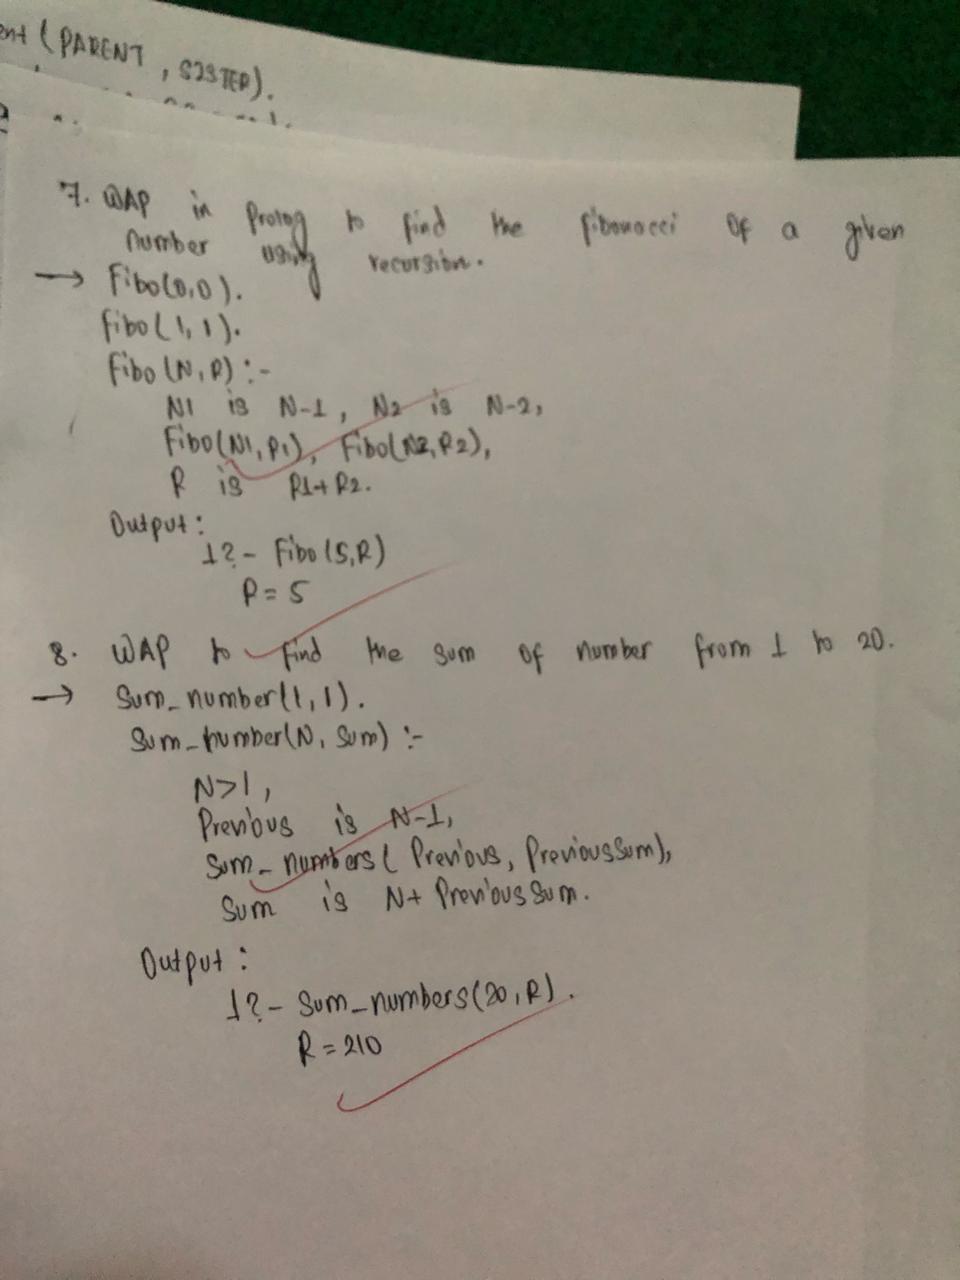 ent (PARENT, S2STER).
7. WAP in Prolog to find the fibonacci of a given
number using recursion.
→ Fibo(0,0).
fibo(1,1).
Fibo(N,R) :-
N1 is N-1, N2 is N-2,
Fibo(N1,R1), Fibo(N2,R2),
R is R1+R2.
Output:
1?- Fibo(5,R)
R = 5
8. WAP to find the sum of number from 1 to 20.
→ Sum_number(1,1).
Sum_number(N, Sum) :-
N>1,
Previous is N-1,
Sum_numbers( Previous, PreviousSum),
Sum is N+ PreviousSum.
Output:
1?- Sum_numbers(20,R).
R = 210